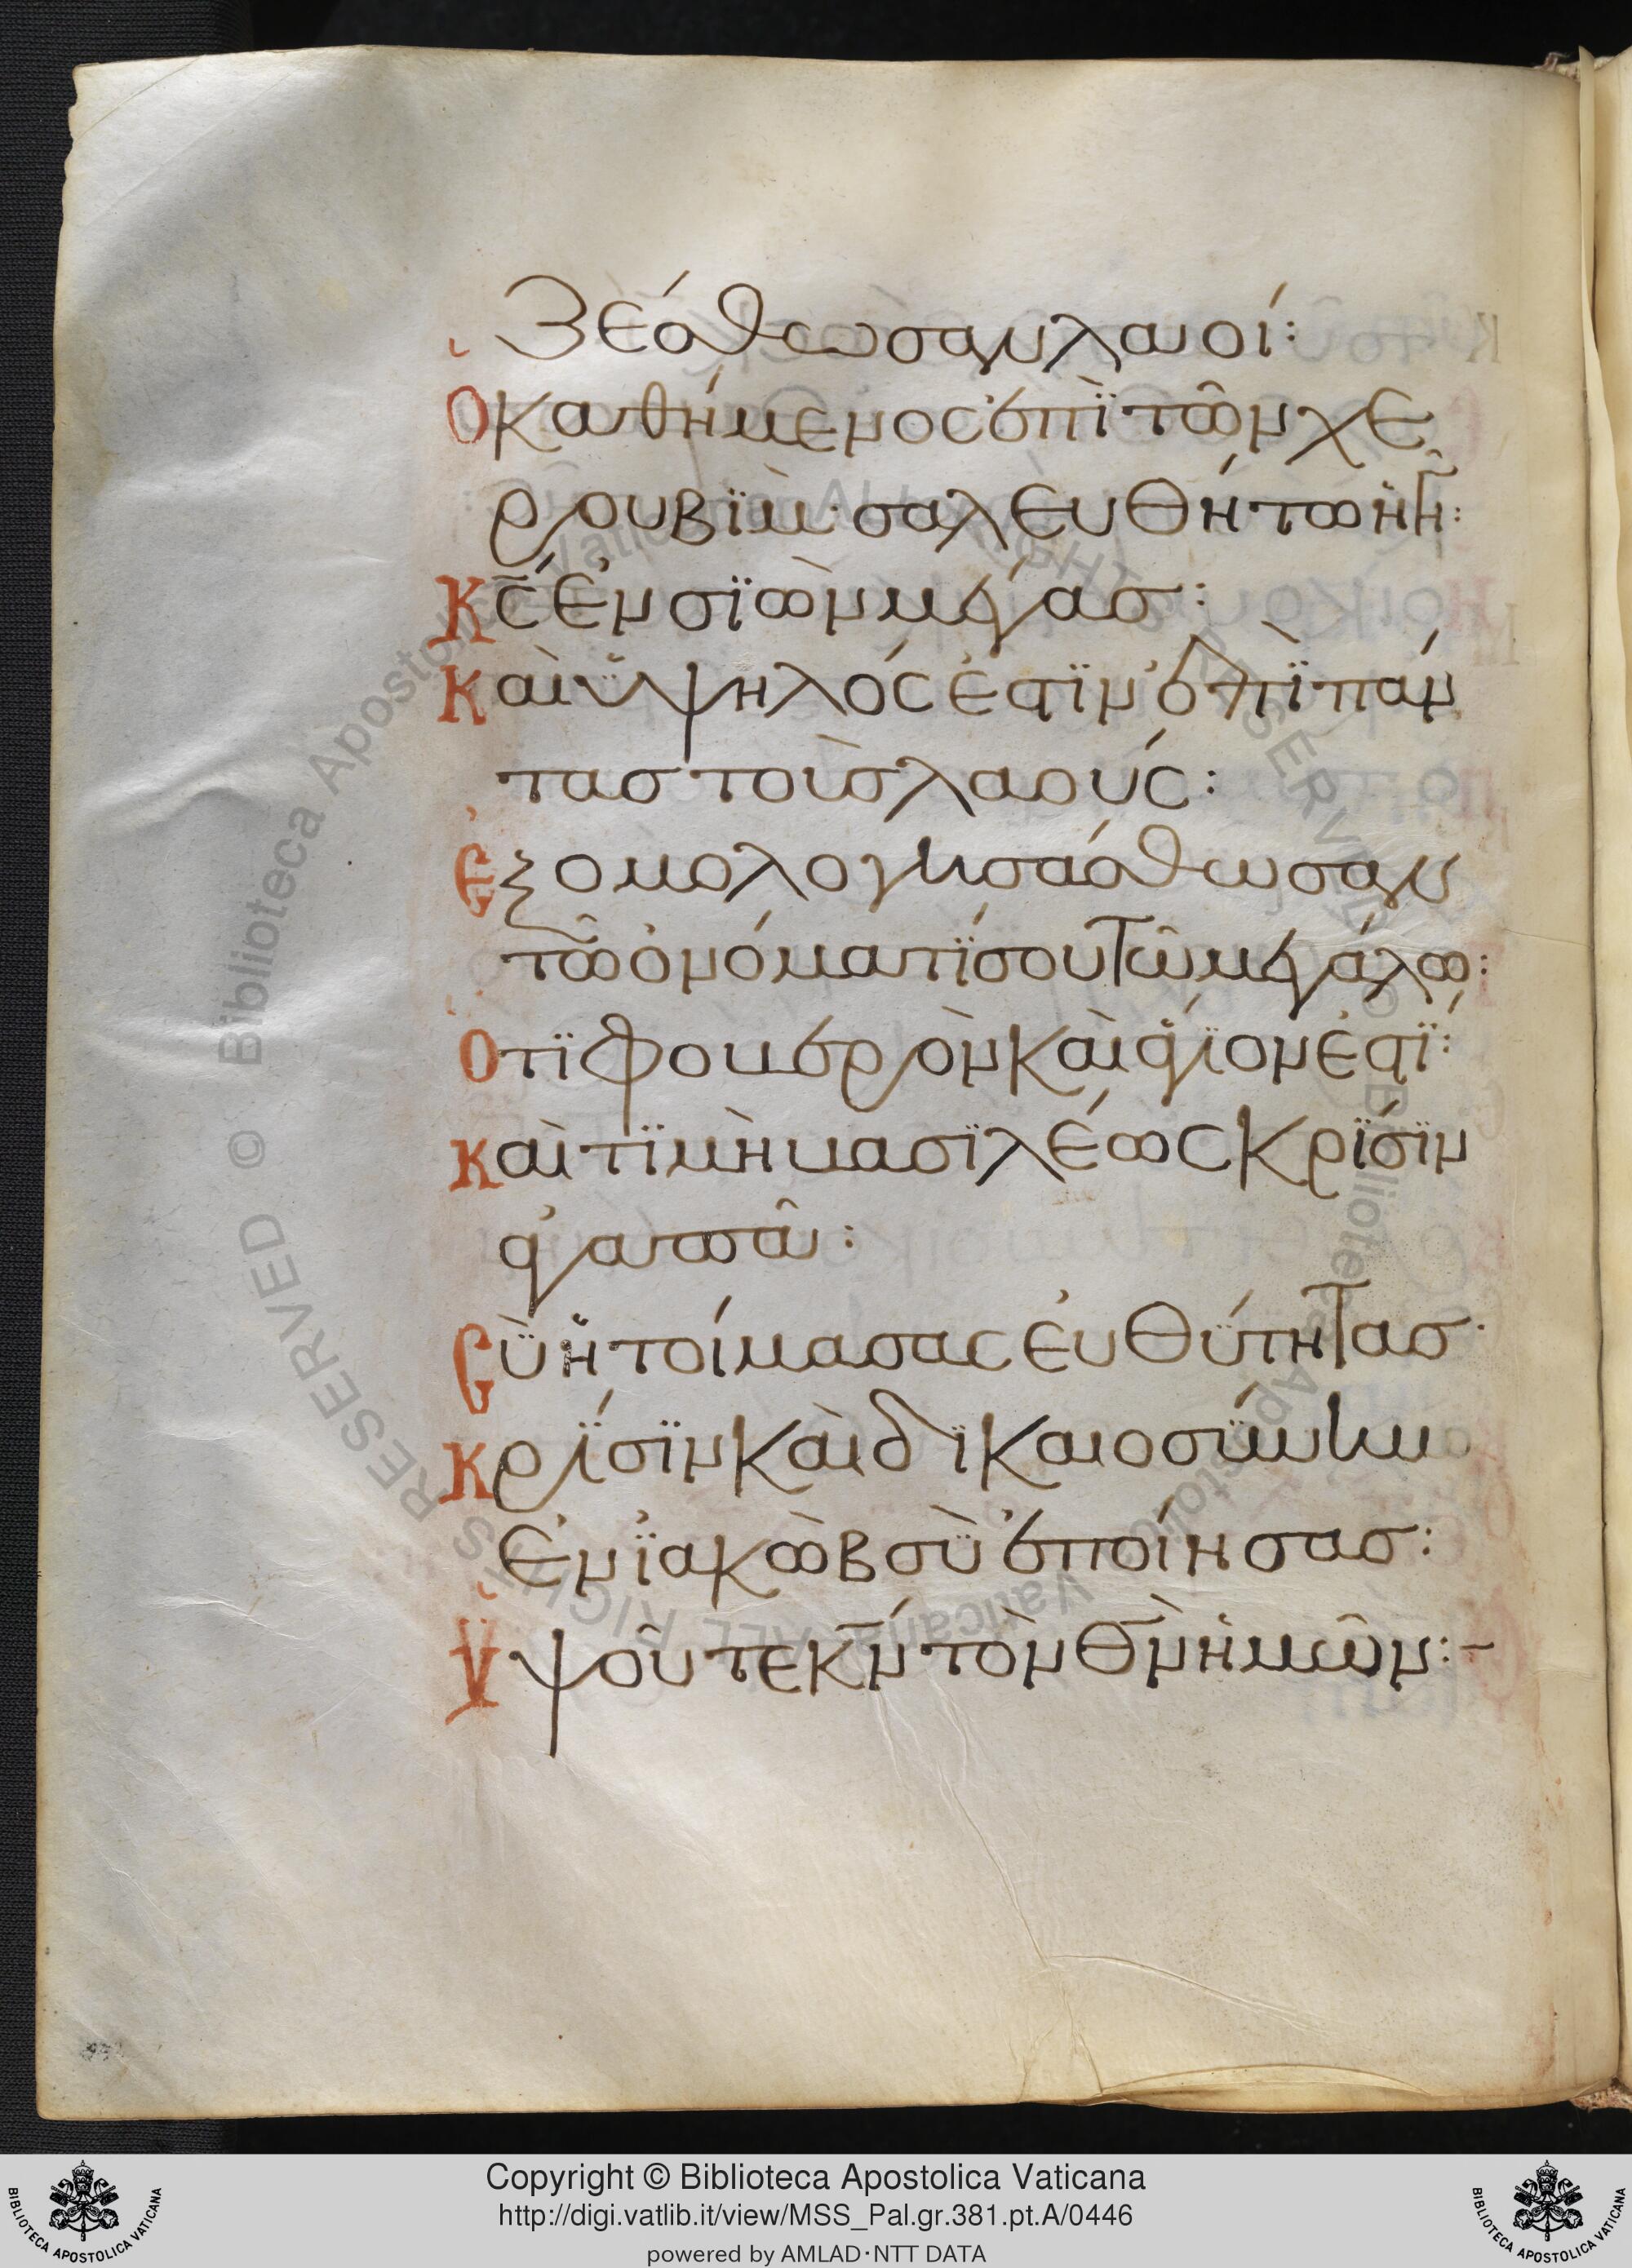 ζέσθωσαν λαοί:
Ὁ καθήμενος ἐπὶ τῶν χε
ρουβὶμ· σαλευθήτω ἡ γῆ:
Κ̅ς̅ ἐν σϊὼν μέγας:
Καὶ ὑψηλός ἐστϊν ἐπὶ πάν
τας τοὺς λαούς:
Ἐξομολογησάσθωσαν
τῶ ὀνόματί σου τῶ μεγάλω:
Ὅτϊ φοβερὸν καὶ ἅγϊον ἐστϊ:
Καὶ τϊμὴ βασϊλέως κρίσϊν
ἀγαπᾶ:
Σὺ ἡτοίμασας εὐθύτητας·
Κρίσϊν καὶ δϊκαιοσύνην
ἐν ϊακὼβ σὺ ἐποίησας:
Ὑψοῦτε κ̅ν̅ τὸν θ̅ν̅ ἡμῶν:-
Copyright © Biblioteca Apostolica Vaticana
http://digi.vatlib.it/view/MSS_Pal.gr.381.pt.A/0446
powered by AMLAD·NTT DATA
BIBLIOTECA APOSTOLICA VATICANA
BIBLIOTECA APOSTOLICA VATICANA